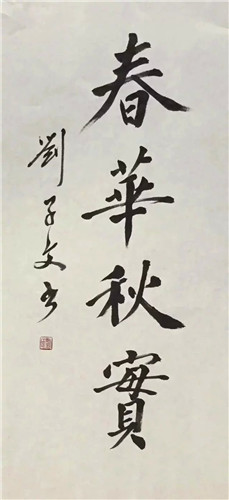 春華秋實
劉子文书